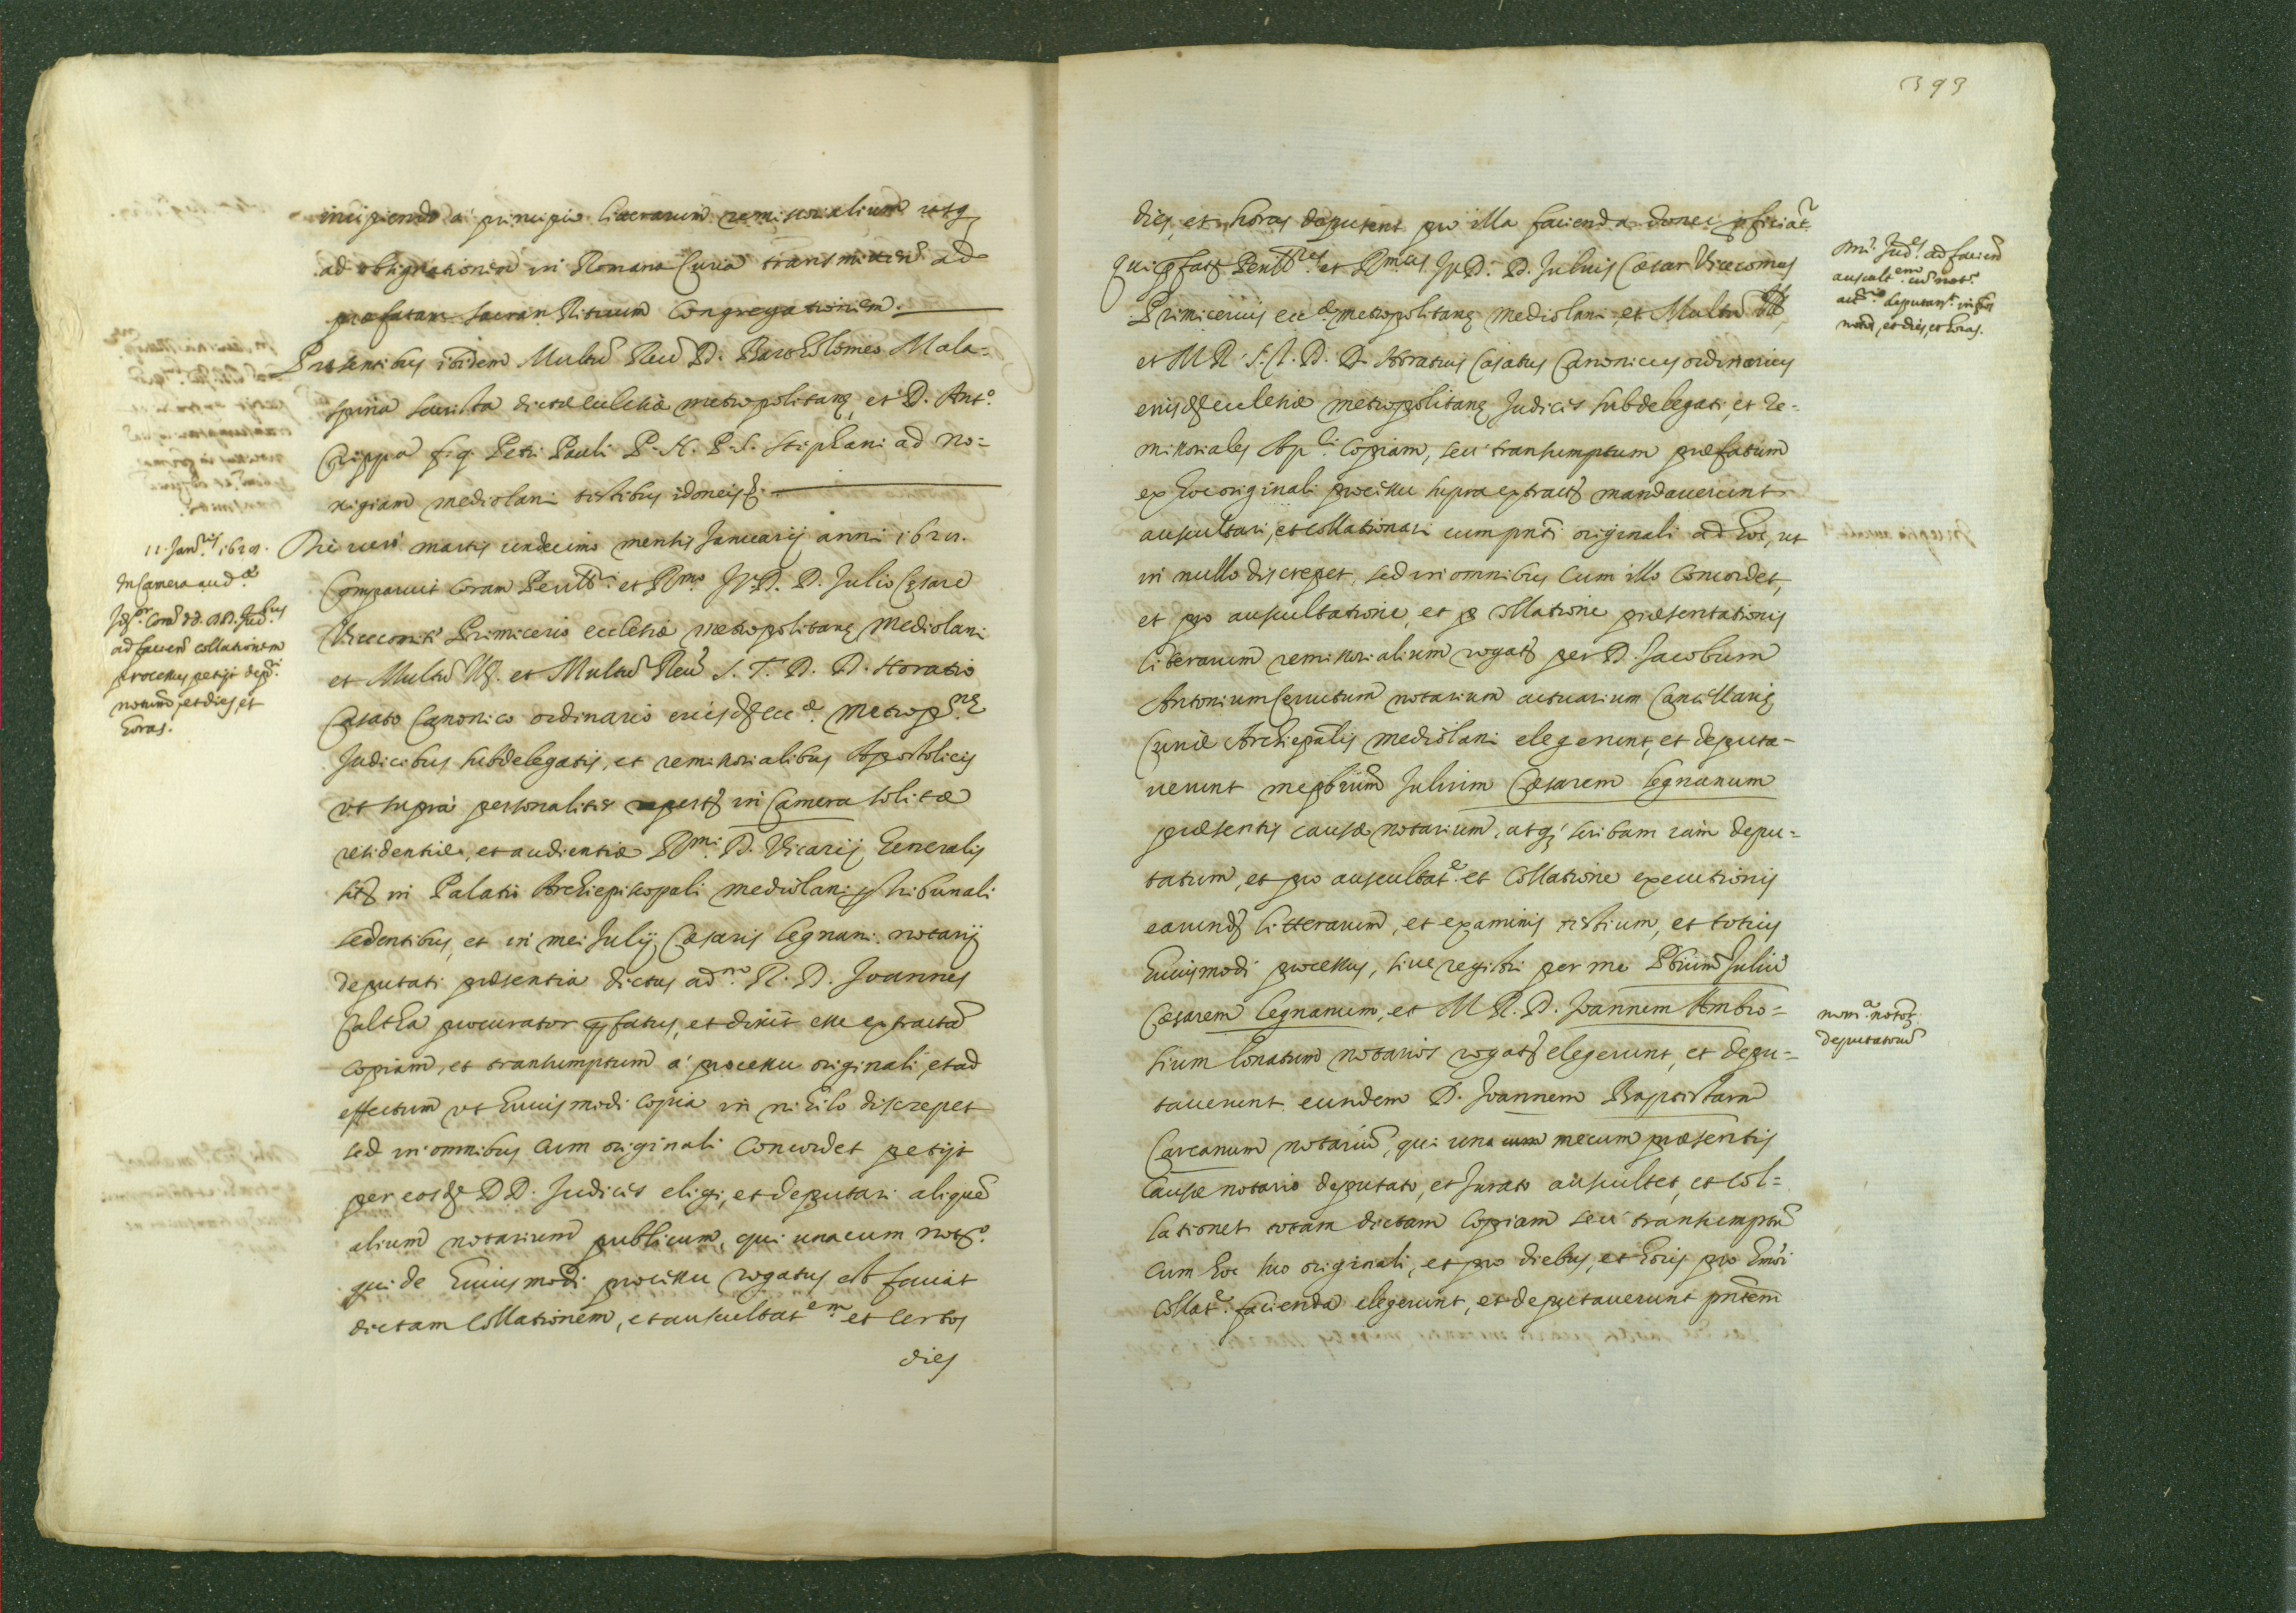 incipiendo a' principio literarum remissorialium usq₃
ad obsignationem in Romana Curia transmittend ad
præfatam sacram Rituum Congregationem.
Præsentibus ibidem Multũ Reũ D. Bartholomeo Mala=
spina sacrista dictæ ecclesiæ metropolitanę, et D. Ant.º
Crippa fiq. Petri Pauli P. N. P. S. Stephani ad no=
xigiam mediolani testibus idoneis
11. Jan.rij 1621.
In Camera aud.æ
coram DD. Jud.bus
ad faciend collationem
processus petijt
notarium, et dies, et
horas.
Die vero martis undecimo mensis Januarij anni 1621.
Comparuit coram Perill.ri et R.mo J. D. D. Julio Cęsare
Vicecomiti Primicerio ecclesiæ metropolitanę Mediolani
et Multũ Ill. et Multũ Reũ S. T. D. D. Horatio
Casato Canonico ordinario eiusd ecc.æ Metrop.nę
Judicibus subdelegatis, et remissorialibus Apostolicis
ut supra' personaliter repert in Camera solitæ
residentiæ, et audientiæ R.mi D. Vicarij Generalis
sit in Palatio Archiepiscopali mediolani p tribunali
sedentibus, et in mei Julij Cæsaris Legnani notarij
deputati præsentia dictus ad. R. D. Joannes
Calcha procurator pfatus, et dixit esse extractã
copiam, et transumptum a' processu originali, et ad
effectum ut huiusmodi copia in nihilo discrepet
sed in omnibus cum originali concordet petijt
per eosd DD. Judices eligi, et deputari aliquẽ
alium notarium publicum, qui una cum not.º
qui de huiusmodi processu rogatus est faciat
dictam collationem, et auscultat.em et certos
dies
393
dies, et horas deputent pro illa facienda donec pficiat.r
Qui pfat Perill.res et R.mus J. D. D. Julius Cæsar Vicecomes
Primicerius ecc.æ metropolitanę mediolani, et Multũ Ill,
et M. R. S. T. D. D. Horatius Casatus Canonicus ordinarius
eiusd ecclesiæ metropolitanę Judices subdelegati, et re=
missoriales Ap.ci copiam, seu transumptum præfatum
ex hoc originali processu supra extract mandaverunt
auscultari, et collationari cum pnti originali ad hoc, ut
in nullo discrepet, sed in omnibus cum illo concordet,
et pro auscultatione, et p collatione præsentationis
literarum remissorialium rogat per D. Jacobum
Antonium Cerrutum notarium actuarium Cancellarię
Curiæ Archiepalis mediolani elegerunt, et deputa-
verunt me pbrum Julium Cæsarem Legnanum
præsentis causæ notarium, atq₃ scribam iam depu=
tatum, et pro auscultat.e et collatione executionis
earund litterarum, et examinis testium, et totius
huiusmodi processus, sive registri per me Pbrum Juliũ
Cæsarem Legnanum, et M. R. D. Joannem Ambro=
sium Lonatum notarios rogat elegerunt, et depu=
taverunt eundem D. Joannem Baptistam
Carcanum notariũ, qui una cum mecum præsentis
causæ notario deputato, et jurato auscultet, et col=
lationet totam dictam copiam seu transumptũ
cum hoc suo originali, et pro diebus, et horis pro hmoi
collat.e facienda elegerunt, et deputaverunt pntem
Jud. ad faciend
auscult.em cũ not.º
deputant
notũ, et dies, et horas.
nom.a
deputatorũ